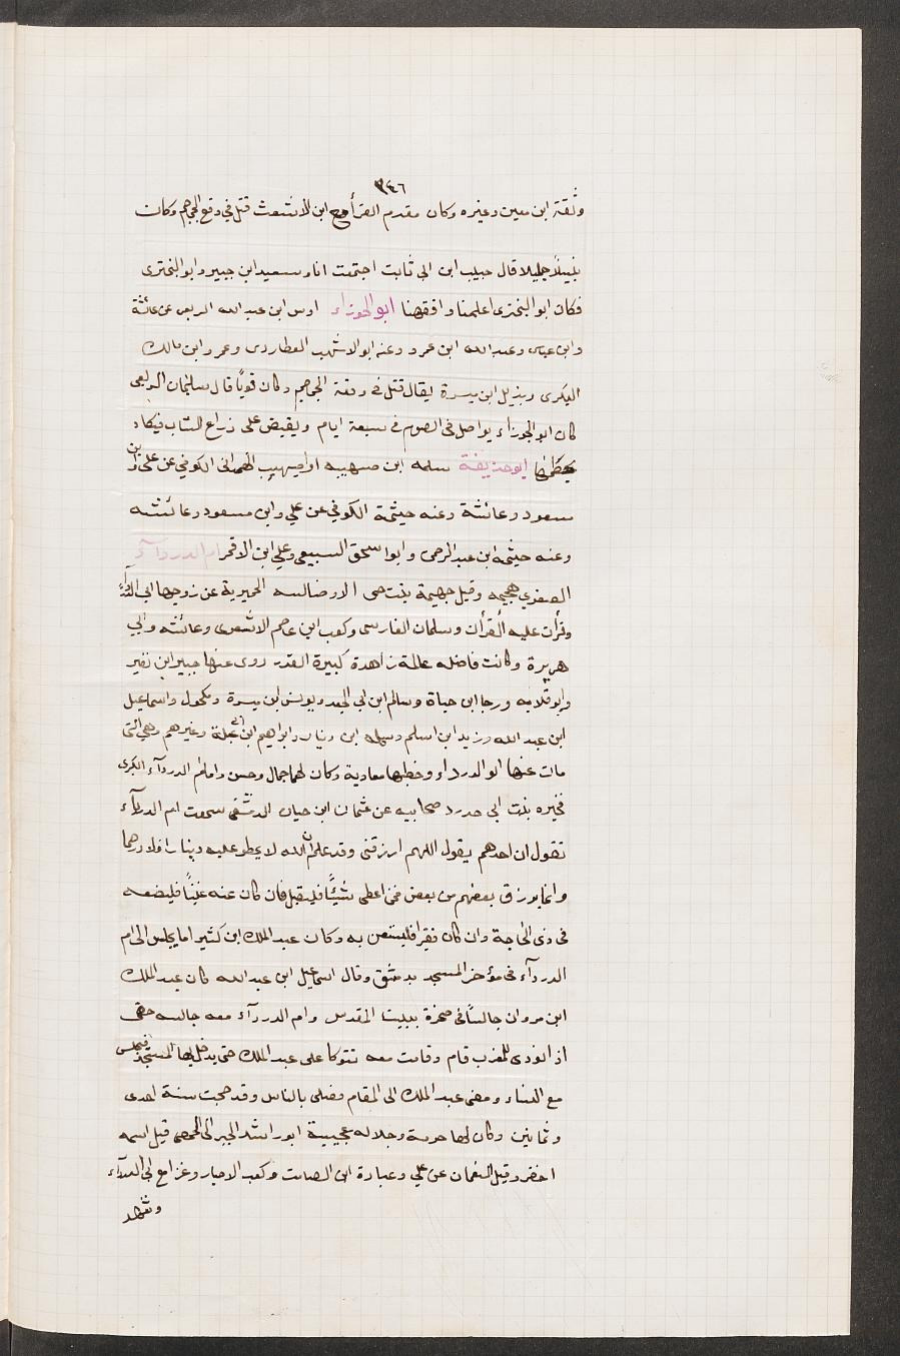 ٣٤٦
وثقة ابن معين وغيره وكان مقدم القرأ مع ابن الأشعث قتل في وقع الجماجم وكان
نبيلاً جليلا قال حبيب ابن ابي ثابت اجتمعت انا وسعيد ابن جبير وابو البختري
فكان ابو البختري اعلمنا وافقهنا ابو الجوزاء اوس ابن عبد الله الربعي عن عائشة
وابن عباس وعبد الله ابن عمرو وعنه ابو الاشهب العطاردي وعمرو ابن مالك
البكري وبديل ابن ميسرة يقال قتل في وقعة الجماجم وكان قويًا قال سليمان الربعي
كان ابو الجوزاء يواصل في الصوم في سبعة ايام ويقبض على ذراع الشاب فيكاد
يحطمها ابو حذيفة سلمه ابن صهيبه او صهيب الهمداني الكوفي عن علي وابن
مسعود وعائشة وعنه حيثمة الكوفي عن علي وابن مسعود وعائشه
وعنه حيثمه ابن عبد الرحمن وابو اسحق السبيعي وعلي ابن الاقمر ام الدرداء
الصغري هجيمه وقيل جهيمة بنت حي الاوصابيه الحميرية عن زوجها ابي الدرداء
وقرأت عليه القرأن وسلمان الفارسي وكعب ابن عاصم الاشعري وعائشه وابي
هريرة وكانت فاضله عالمة زاهدة كبيرة القدر روى عنها جبير ابن نفير
وابو قلابه ورجا ابن حياة وسالم ابن ابي الجعد ويونس ابن ميسرة ومكحول واسماعيل
ابن عبد الله وزيد ابن اسلم وسلمه ابن دينار وابراهيم ابن ابي عبلة وغيرهم وهي التي
مات عنها ابو الدرداء وخطبها معاوية وكان لها جمال وحسن واما ام الدردآء الكبرى
فخيره بنت ابي حدرد صحابيه عن عثمان ابن حيان الدمشقي سمعت ام الدردآء
تقول ان احدهم يقول اللهم ارزقني وقد علم ان الله لا يمطر عليه دينارا ولا درهما
وانما يرزق بعضهم من بعض فمن اعطى شيئًا فليقبل فان كان عنه غنيًا فليضعه
في ذي الحاجة وان كان فقيرا فليستعن به وكان عبد الملك ابن كثير اما يجلس الى ام
الدردآء في مؤخر المسجد بدمشق وقال اسماعيل ابن عبد الله كان عبد الملك
ابن مروان جالسًا في صخرة ببيت المقدس وام الدردآء معه جالسه حتى
اذا نودي للمغرب قام وقامت معه تتوكا على عبد الملك حتى يدخل بها المسجد فيجلس
مع النساء ومضى عبد الملك الى المقام فصلى بالناس وقد حجت سنة احدى
وثمانين وكان لها حرمة وجلاله عجيبة ابو راشد الحبراني الحمصي قيل اسمه
اخضر وقيل النعمان عن علي وعبادة ابن الصامت وكعب الاحبار وغزا مع ابي الدردآء
وشهد